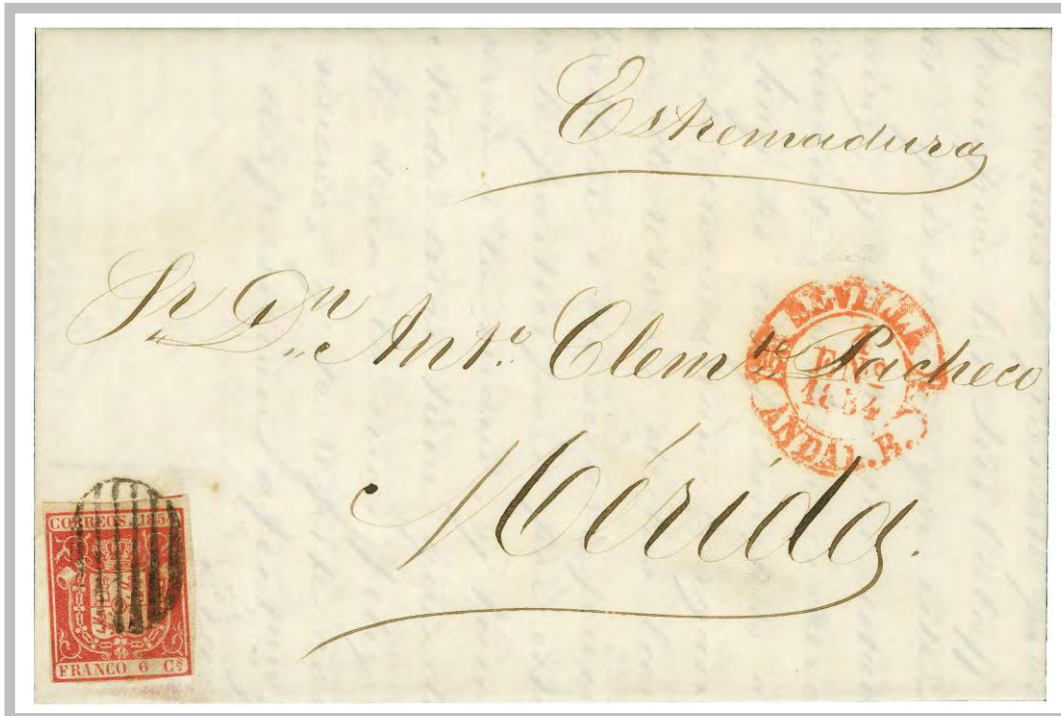 Estremadura
Sr Dn Anto. Clemte Pacheco
Mérida.
SEVILLA
1
ENO
1854
ANDAL. B.
CORREOS. 185
FRANCO 6 CS